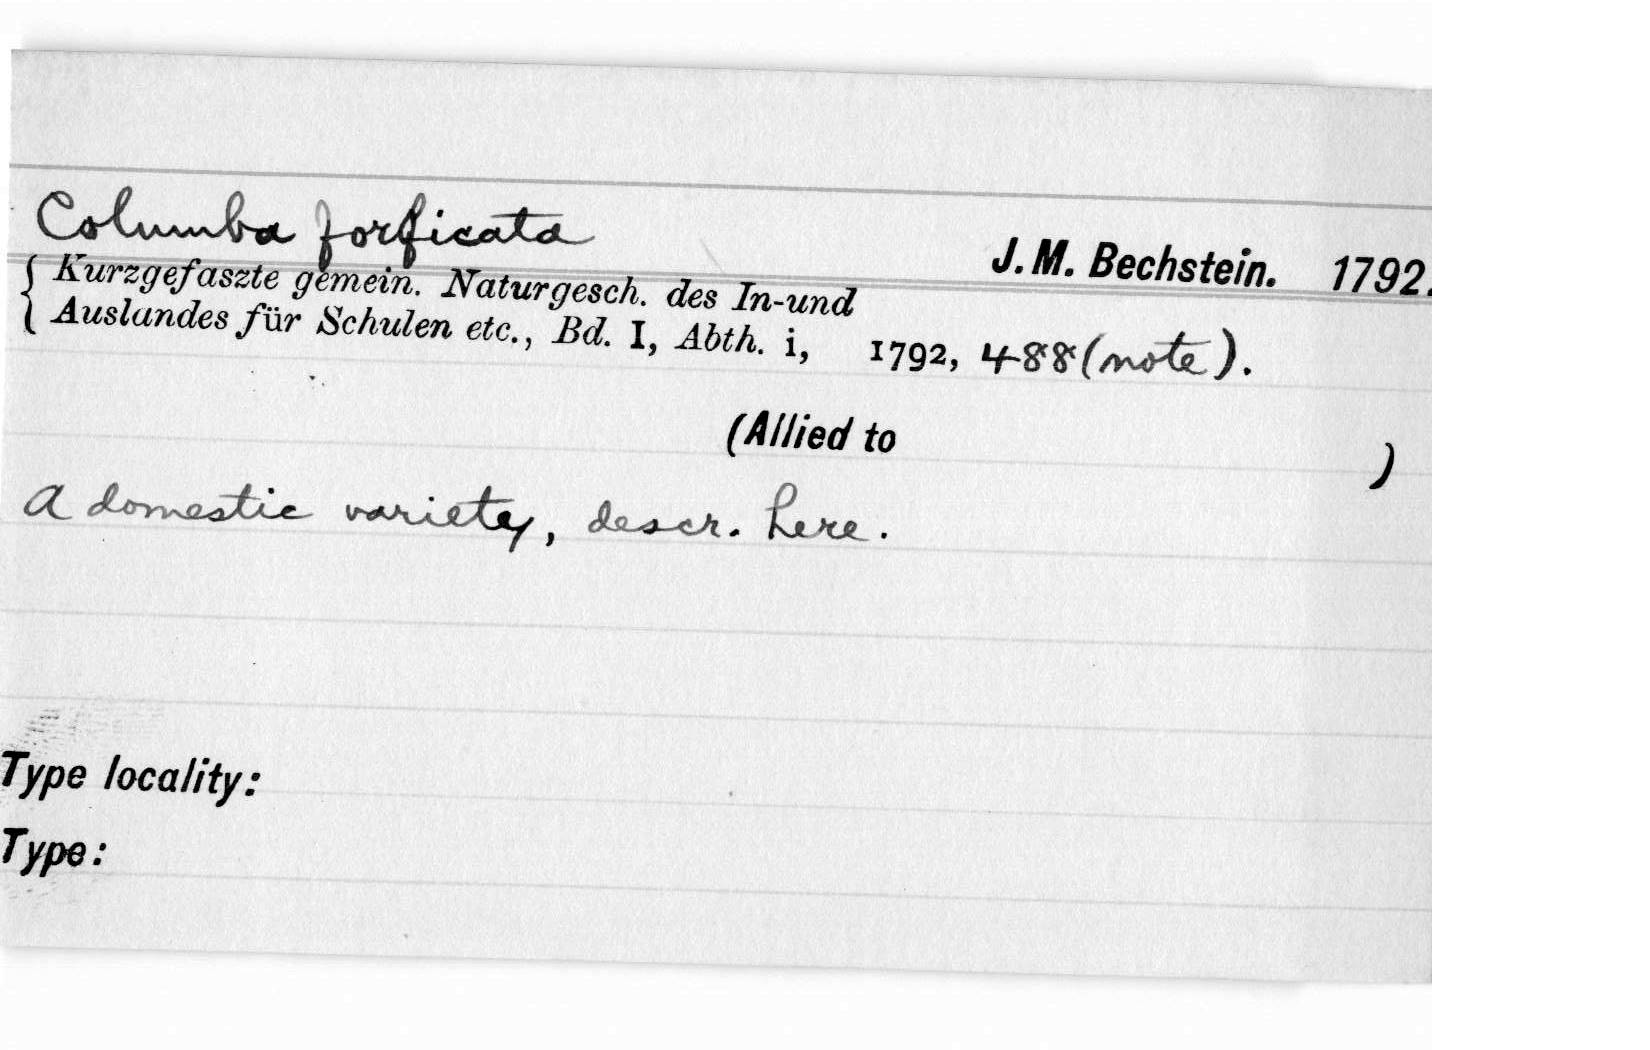 Columba forficata
J. M. Bechstein. 1792.
Kurzgefaszte gemein. Naturgesch. des In-und
Auslandes für Schulen etc., Bd. I, Abth. i, 1792, 488 (note).
(Allied to )
A domestic variety, descr. here.
Type locality:
Type: